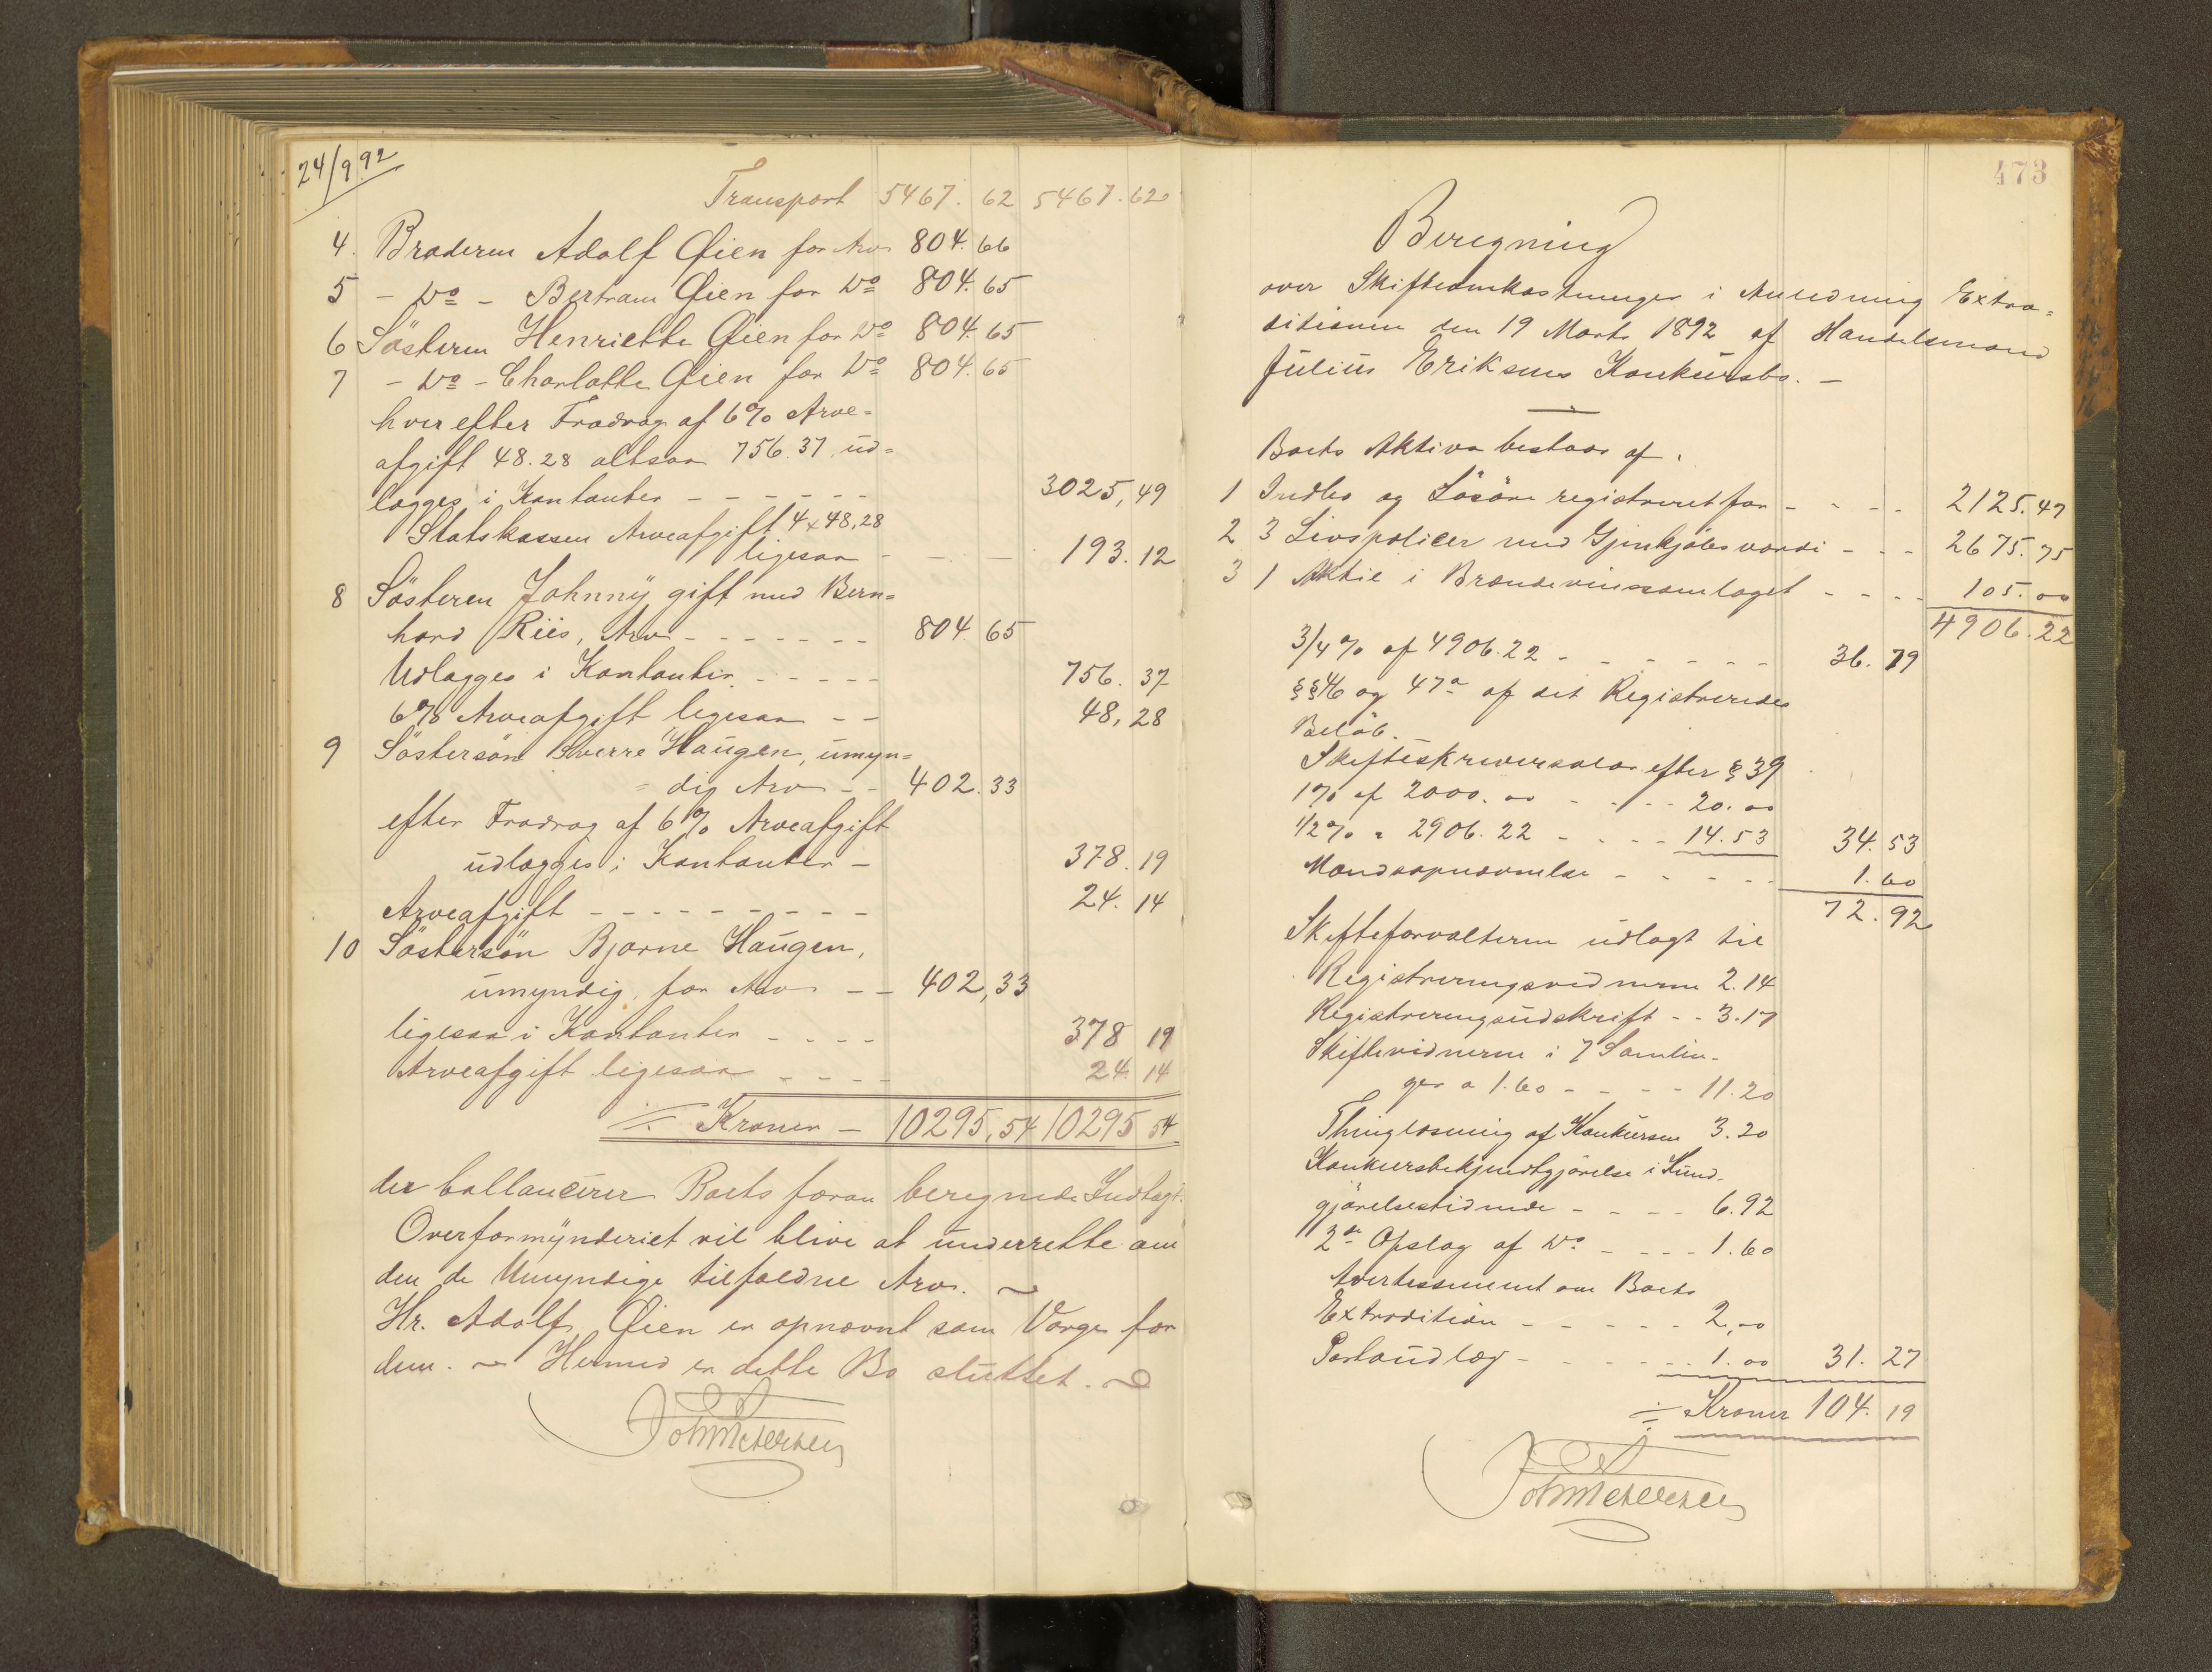 24/9 92
Transport 5467.62 5467.62
4. Broderen Adolf Øien for Arv 804.66
5 - Do - Bertram Øien for Do 804.65
6 Søsteren Henriette Øien for Do 804.65
7 - Do - Charlotte Øien for Do 804.65
hver efter Fradrag af 6% Arve=
afgift 48.28 altsaa 756.37 ud=
lægges i Kontanter - - - - - - 3025,49
Statskassen Arveafgift 4 x 48,28
ligesaa - - - 193.12
8 Søsteren Johnny gift med Bern=
hard Riis, Arv - - - - - - - 804 65
Udlægges i Kontanter - - - - - 756.37
6% Arveafgift ligesaa - - 48,28
9 Søstersøn Sverre Haugen, umyn=
= dig Arv - - 402.33
efter Fradrag af 6% Arveafgift
udlægges i Kontanter - 378.19
Arveafgift - - - - - - - - - 24.14
10 Søstersøn Bjarne Haugen,
umyndig, for Arv - - 402,33
ligesaa i Kontanter - - - - 378 19
Arveafgift ligesaa - - - - 24.14
Kroner - 10295,54 10295 54
der ballancerer Boets foran beregnede Indtægt.
Overformynderiet vil blive at underrette om
den de Umyndige tilfaldne Arv. ~
Hr. Adolf Øien er opnævnt som Værge for
dem. ~ Hermed er dette Bo sluttet. ~
473
Beregning
over Skifteomkostninger i Anledning Extra=
ditionen den 19 Marts 1892 af Handelsmand
Julius Eriksens Konkursbo. -
Boets Aktiva bestaar af.
1 Indbo og Løsøre registreret for - - - - 2125.47
2 3 Livspolicer med Gjenkjøbsværdi - - - 2675.75
3 1 Aktie i Brændevinssamlaget - - - - 105.00
4906.22
3/4% af 4906.22 - - - - - - 36.79
§§46 og 47a af det Registrerede
Beløb.
Skifteskriversalær efter § 39
1% af 2000.00 - - - - 20.00
1/2% " 2906.22 - - - - 14.53 34.53
Mandsopnævnelse - - - - - 1.60
72.92
Skifteforvalteren udlagt til
Registreringsvidnerne 2.14
Registreringsudskrift - - 3.17
Skiftevidnerne i 7 Samlin-
ger a 1.60 - - - - 11.20
Thinglæsning af Konkursen 3.20
Konkursbekjendtgjørelse i Kund-
gjørelsestidende - - - - 6.92
2de Opslag af Do - - - - 1.60
Avertissement om Boets
Extradition - - - - - 2,00
Portoudlæg - - - - - - 1.00 31.27
Kroner 104.19